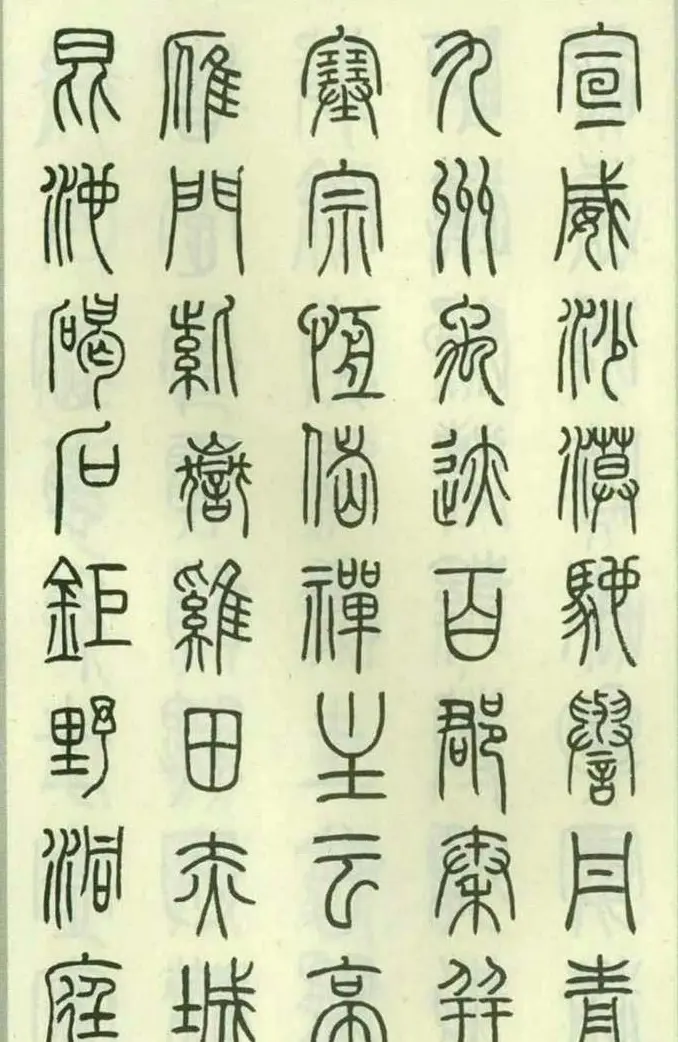 宣威沙漠馳譽丹青
九州禹迹百郡秦并
塞宗恒岱禪主云亭
雁門紫嶽雞田赤城
昆池碣石鉅野洞庭